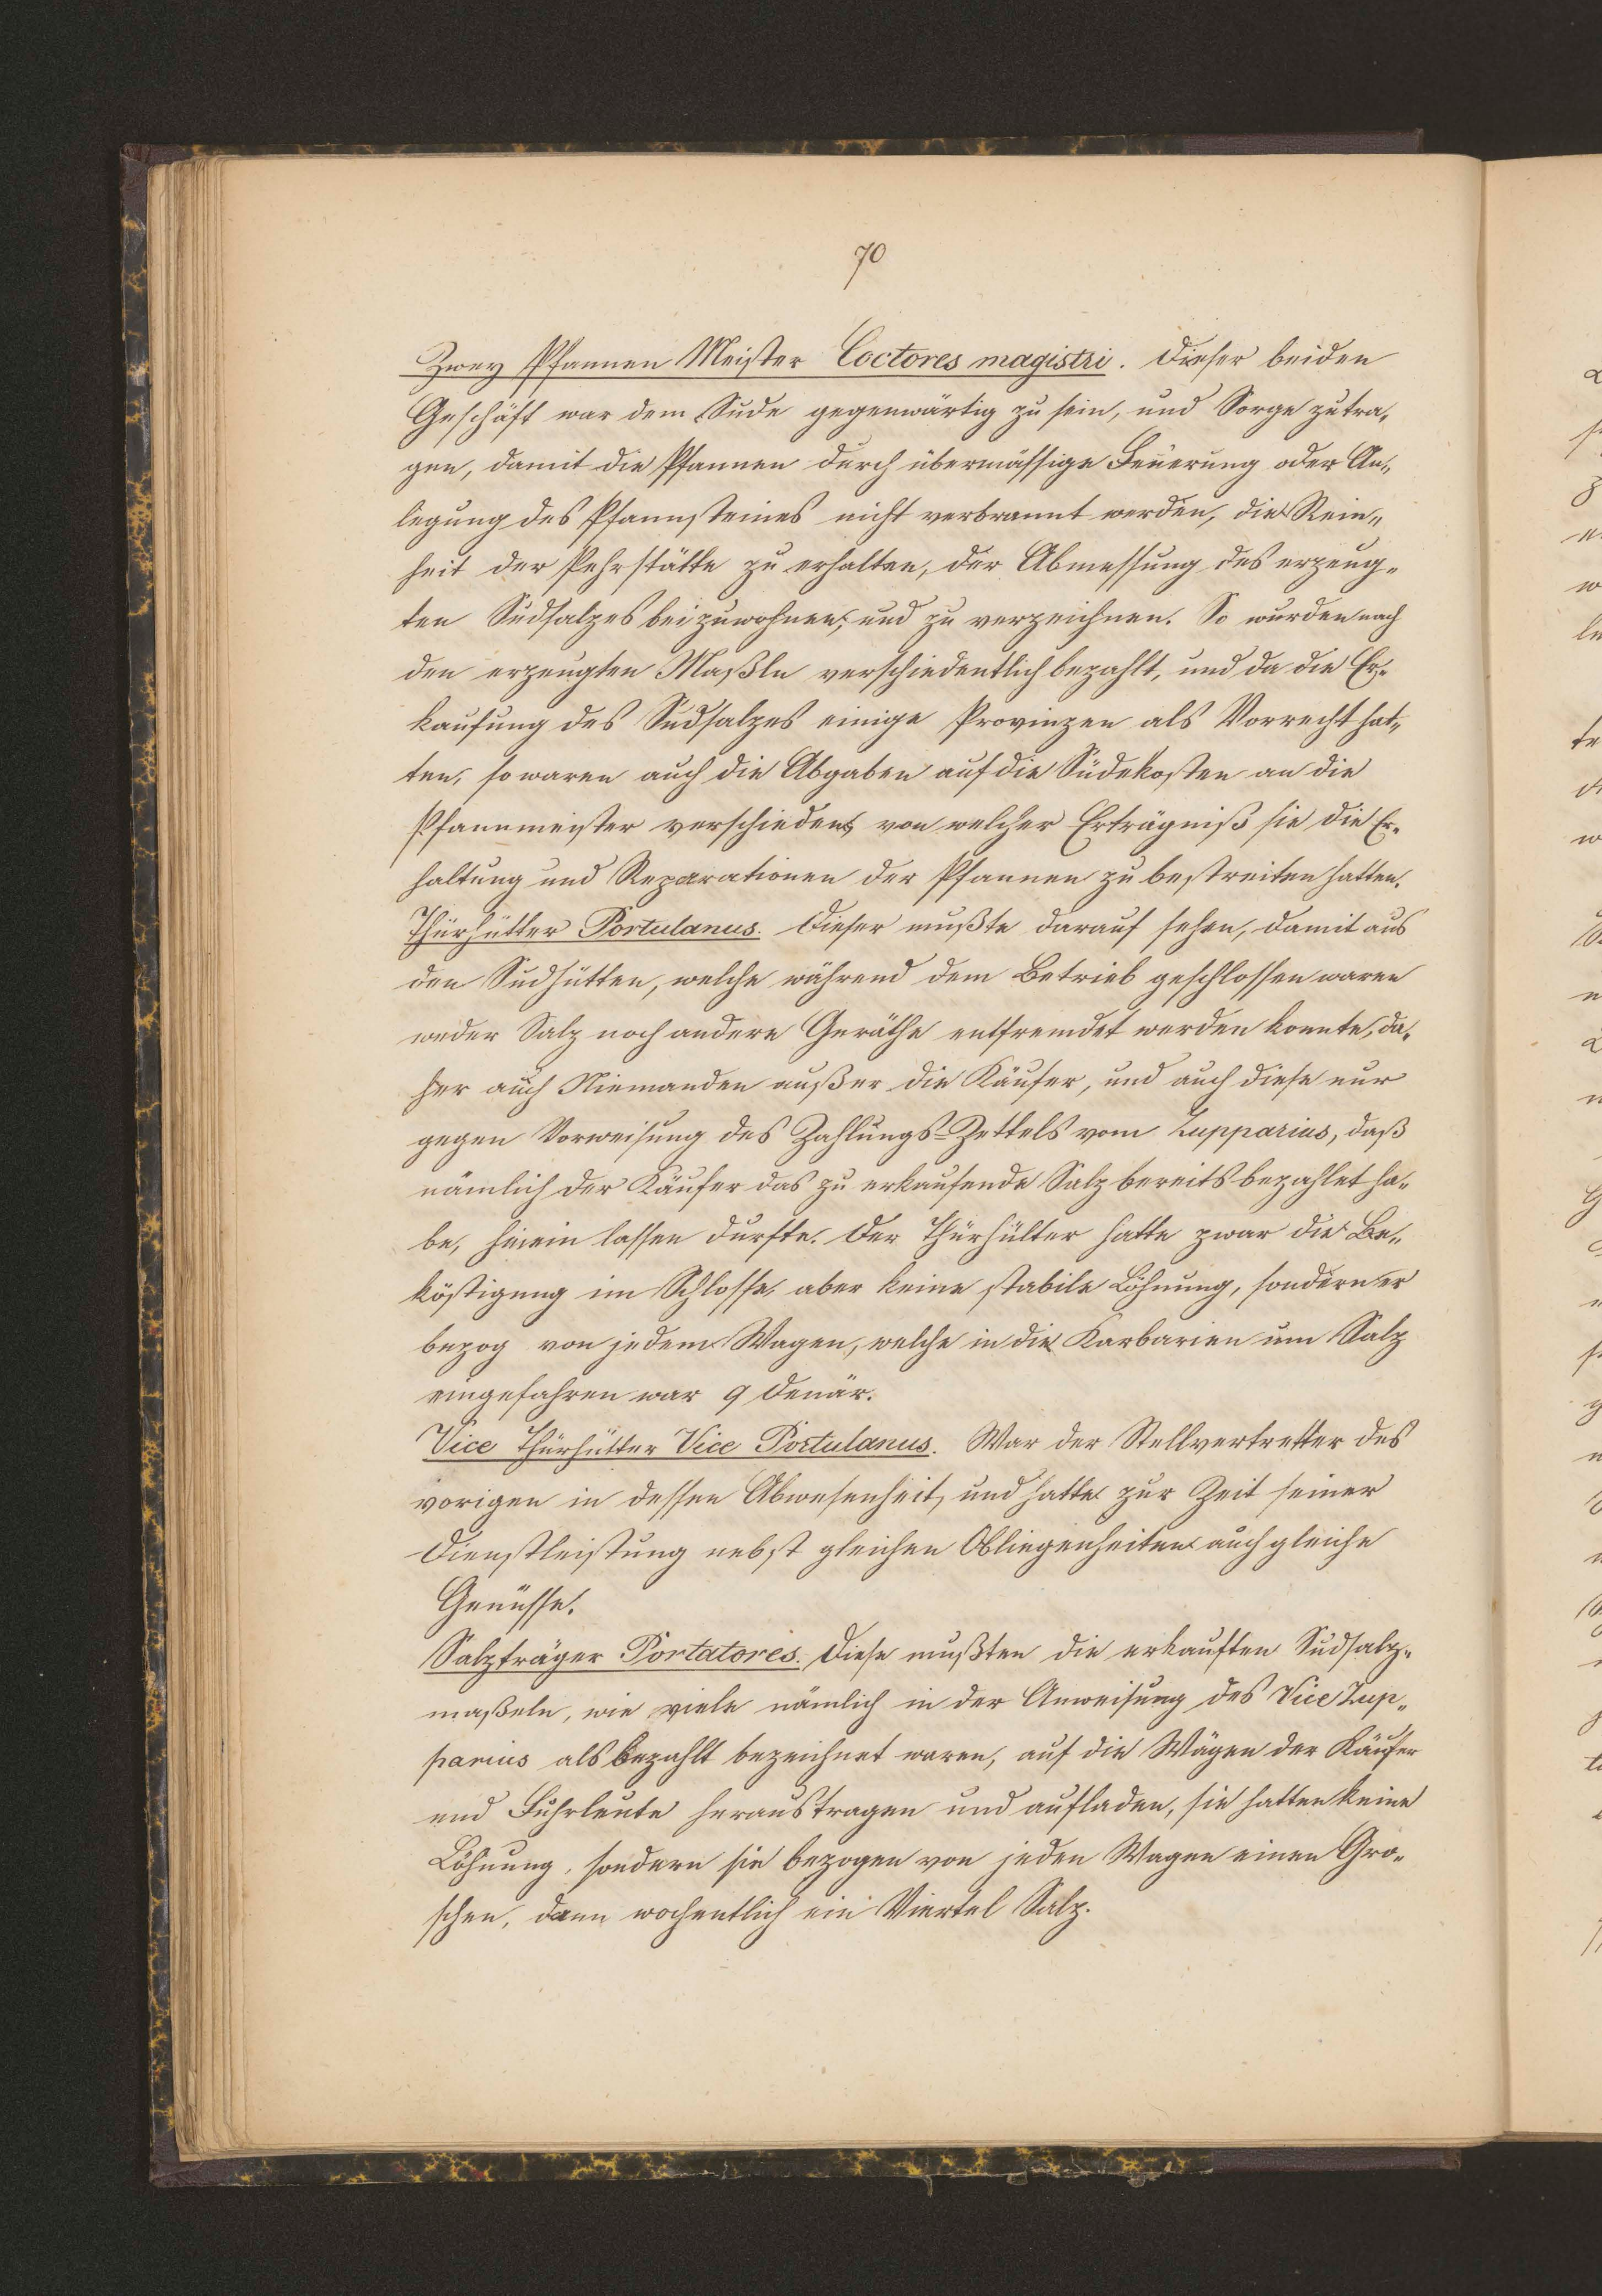 70
Zwey Pfannen Meister Coctores magistri. Dieser beiden
Geschäft war dem Sude gegenwärtig zu sein, und Sorge zutra„
gen, damit die Pfannen durch übermässige Feuerung oder An„
legung des Pfannsteines nicht verbrannt werden, die Rein„
heit der Pehrstätte zu erhalten, der Abmessung des erzeug„
ten Sudsalzes beizuwohnen, und zu verzeichnen. So wurden nach
den erzeugten Maßln verschiedentlich bezahlt, und da die Er„
kaufung des Sudsalzes einige Provinzen als Vorrecht hat„
ten, so waren auch die Abgaben auf die Südekosten an die
Pfannmeister verschieden, von welcher Erträgniß sie die Er„
haltung und Reparationen der Pfannen zu bestreiten hatten.
Thürhütter Portulanus. Dieser mußte darauf sehen, damit aus
den Sudhütten, welche während dem Betrieb geschlossen waren
weder Salz noch andere Geräthe entfremdet werden konnte, da„
her auch Niemanden außer die Käufer, und auch diese nur
gegen Vorweisung des Zahlungs-Zettels vom Zupparius, daß
nämlich der Käufer das zu erkaufende Salz bereits bezahlet ha„
be, hinein lassen durfte. Der Thürhütter hatte zwar die Be„
köstigung im Schlosse aber keine stabile Löhnung, sondern er
bezog von jedem Wagen, welche in die Karbarien um Salz
eingefahren war 9 Denär.
Vice Thürhütter Vice Portulanus. War der Stellvertretter des
vorigen in dessen Abwesenheit, und hatte zur Zeit seiner
Dienstleistung nebst gleichen Obliegenheiten auch gleiche
Genüsse.
Salzträger Portatores. Diese mußten die erkauften Sudsalz„
maßeln, wie viele nämlich in der Anweisung des Vice Zup„
parius als bezahlt bezeichnet waren, auf die Wägen der Käufer
und Fuhrleute heraustragen und aufladen, sie hatten keine
Löhnung, sondern sie bezogen von jeden Wagen einen Gro„
schen, dann wochentlich ein Viertel Salz.